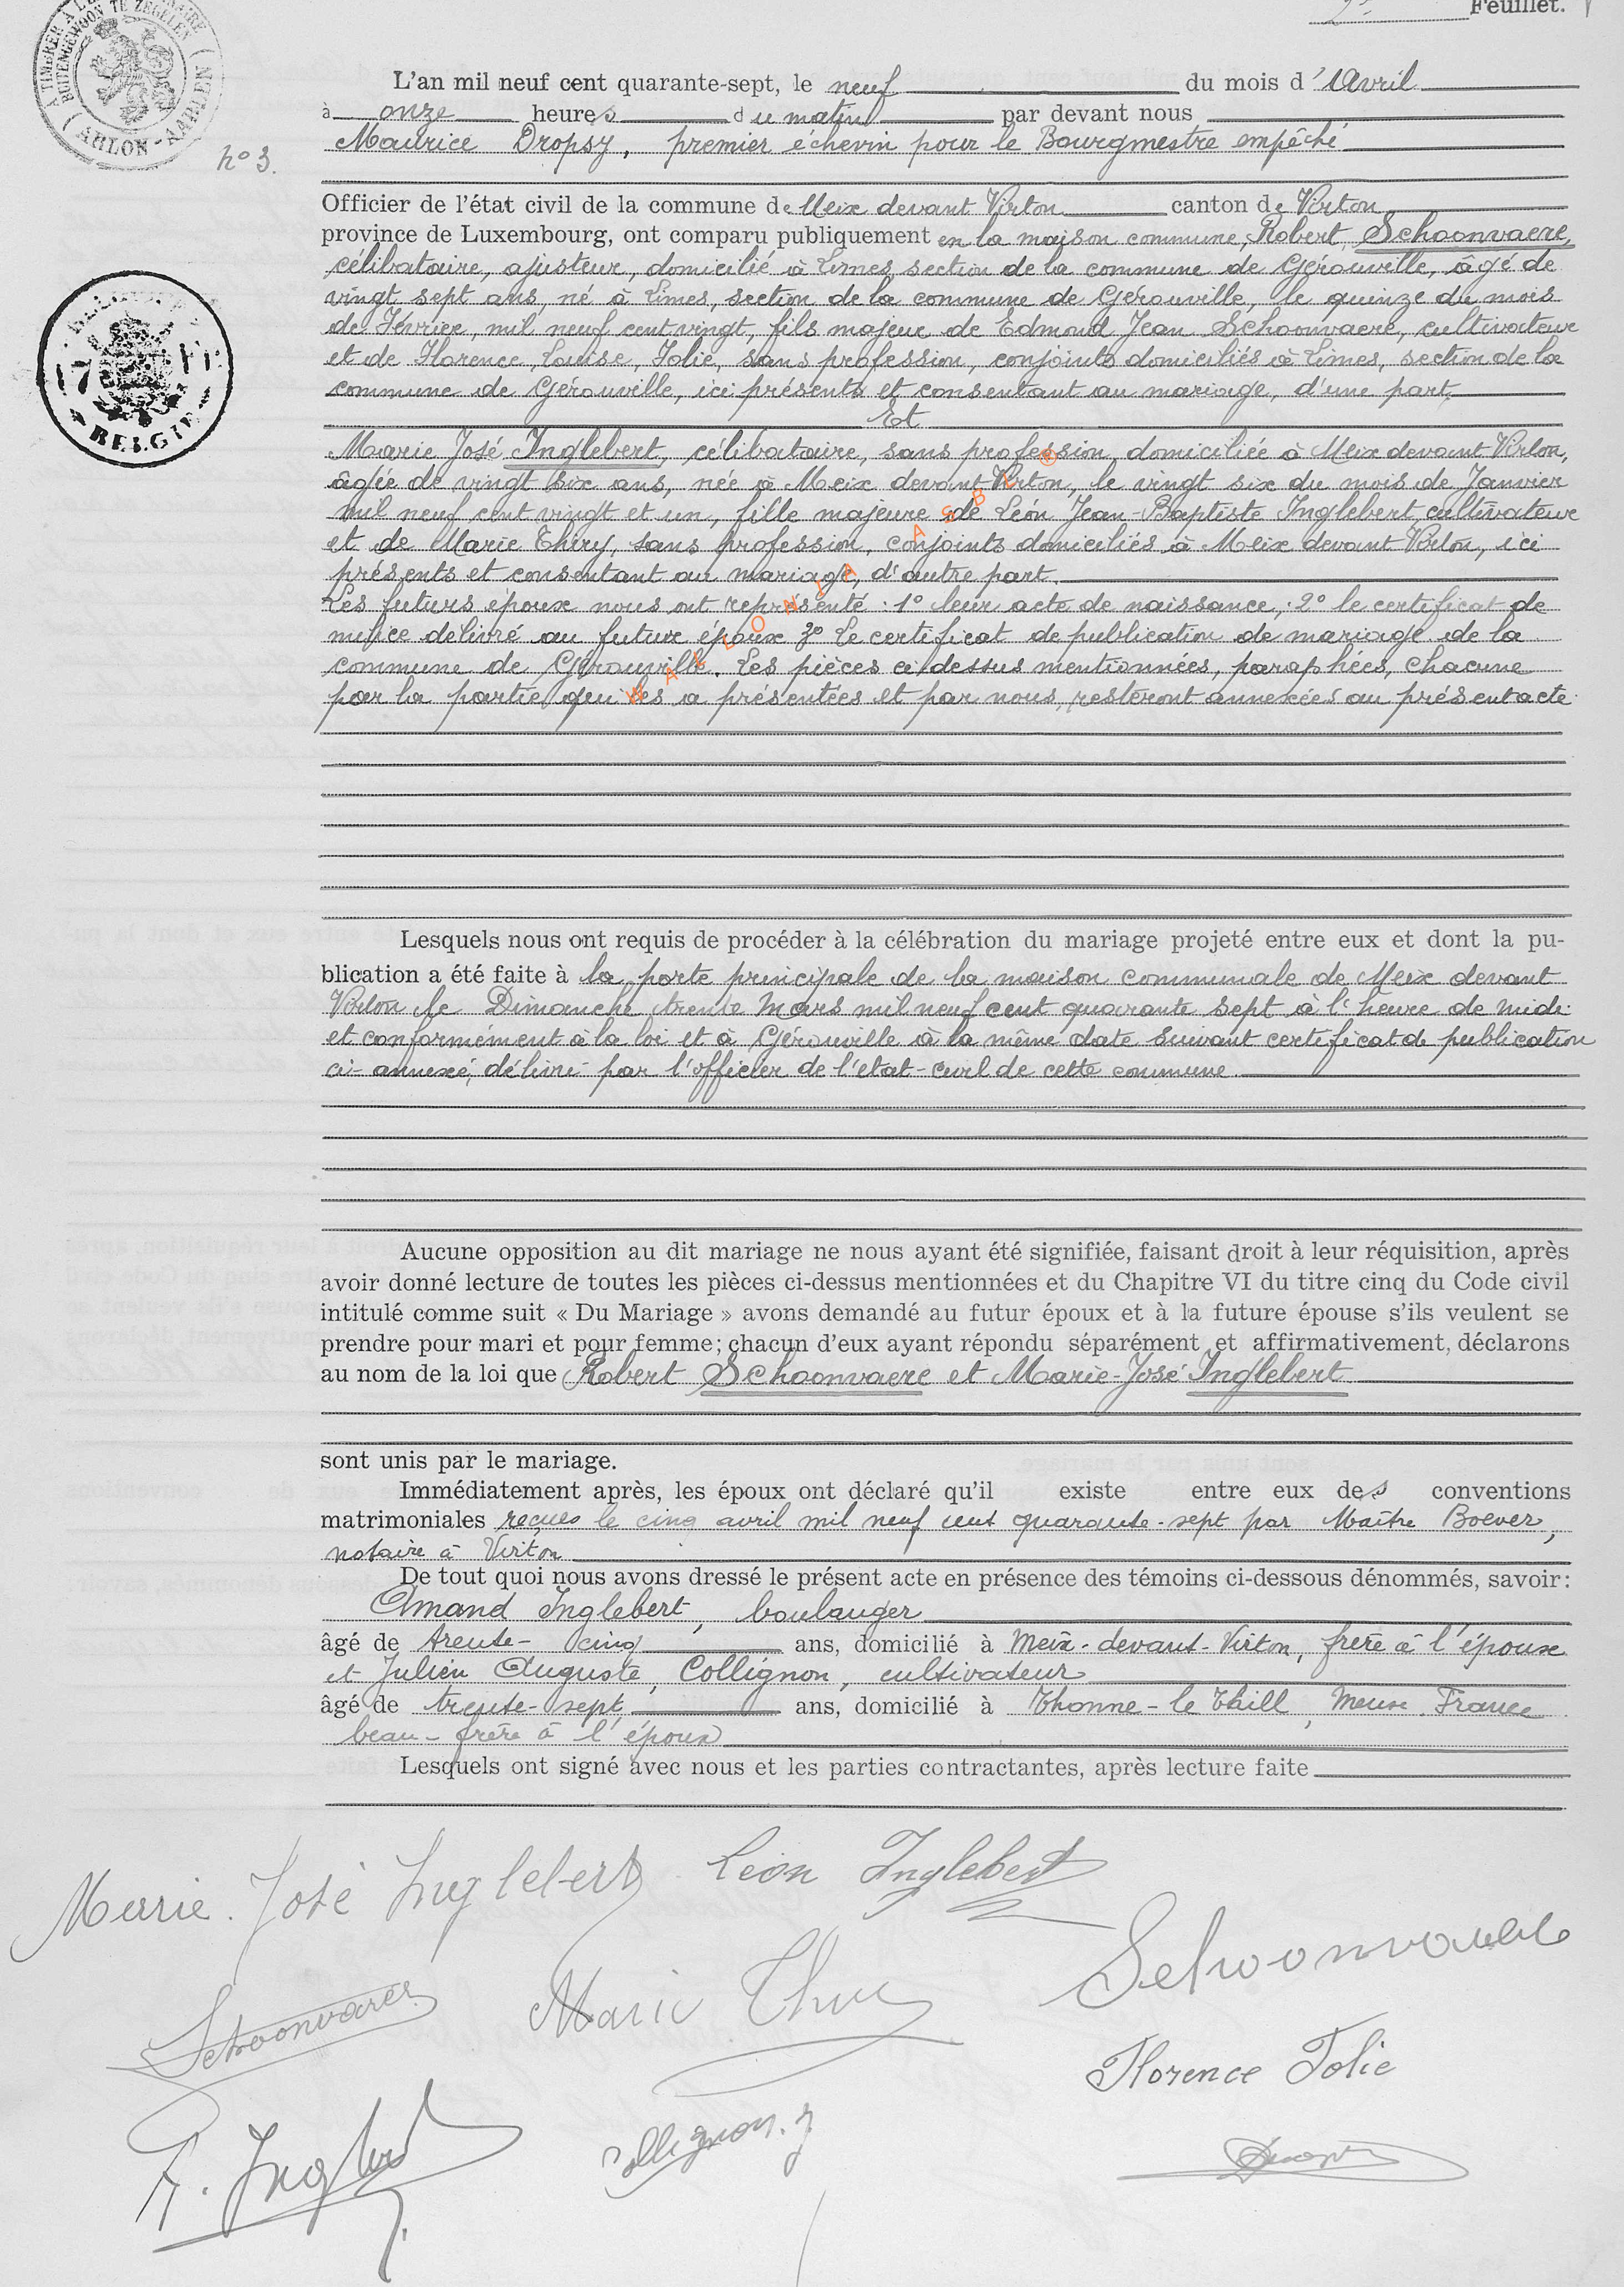 Feuillet.
A TIMBRER À L'EXTRAORDINAIRE
BUITENGEWOON TE ZEGELEN
ARLON-AARLEN
L'an mil neuf cent quarante-sept, le neuf du mois d'Avril
à onze heures du matin par devant nous
Maurice Dropsy, premier échevin pour le Bourgmestre empêché
n° 3.
Officier de l'état civil de la commune de Meix devant Virton canton de Virton
province de Luxembourg, ont comparu publiquement en la maison commune, Robert Schoonvaere,
célibataire, ajusteur, domicilié à Limes, section de la commune de Gérouville, âgé de
vingt sept ans, né à Limes, section de la commune de Gérouville, le quinze du mois
de Février, mil neuf cent vingt, fils majeur de Edmond Jean Schoonvaere, cultivateur
et de Florence, Louise, Tolie, sans profession, conjoints domiciliés à Limes, section de la
commune de Gérouville, ici présents et consentant au mariage, d'une part.
BELGIE
Et
Marie José Inglebert, célibataire, sans profession, domiciliée à Meix devant Virton,
âgée de vingt six ans, née à Meix devant Virton, le vingt six du mois de Janvier
mil neuf cent vingt et un, fille majeure de Léon Jean-Baptiste Inglebert, cultivateur
et de Marie Thiry, sans profession, conjoints domiciliés à Meix devant Virton, ici
présents et consentant au mariage, d'autre part.
WALLONIA ASBL ®
Les futurs époux nous ont représenté : 1° leur acte de naissance; 2° le certificat de
milice délivré au future époux 3° Le certificat de publication de mariage de la
commune de Gérouville. Les pièces ci dessus mentionnées, paraphées, chacune
par la partie qui les a présentées et par nous, resteront annexées au présent acte
Lesquels nous ont requis de procéder à la célébration du mariage projeté entre eux et dont la pu-
blication a été faite à la porte principale de la maison communale de Meix devant
Virton le Dimanche trente Mars mil neuf cent quarante sept à l'heure de midi
et conformément à la loi et à Gérouville à la même date suivant certificat de publication
ci-annexé, délivré par l'officier de l'état-civil de cette commune.
Aucune opposition au dit mariage ne nous ayant été signifiée, faisant droit à leur réquisition, après
avoir donné lecture de toutes les pièces ci-dessus mentionnées et du Chapitre VI du titre cinq du Code civil
intitulé comme suit « Du Mariage » avons demandé au futur époux et à la future épouse s'ils veulent se
prendre pour mari et pour femme; chacun d'eux ayant répondu séparément et affirmativement, déclarons
au nom de la loi que Robert Schoonvaere et Marie-José Inglebert
sont unis par le mariage.
Immédiatement après, les époux ont déclaré qu'il existe entre eux des conventions
matrimoniales reçues le cinq avril mil neuf cent quarante-sept par Maître Boever,
notaire à Virton
De tout quoi nous avons dressé le présent acte en présence des témoins ci-dessous dénommés, savoir :
Amand Inglebert, boulanger
âgé de trente-cinq ans, domicilié à Meix-devant-Virton, frère à l'épouse
et Julien Auguste, Collignon, cultivateur
âgé de trente-sept ans, domicilié à Thonne-le Thill, Meuse France
beau-frère à l'époux
Lesquels ont signé avec nous et les parties contractantes, après lecture faite
Marie. José Inglebert Léon Inglebert
Schoonvaere
Schoonvaere Marie Thiry
Florence Tolie
A. Inglebert Collignon. J
Dropsy